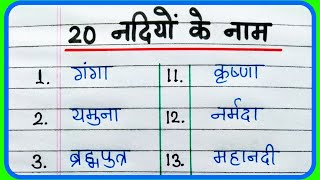 20 नदियों के नाम
1. गंगा 11. कृष्णा
2. यमुना 12. नर्मदा
3. ब्रह्मपुत्र 13. महानदी